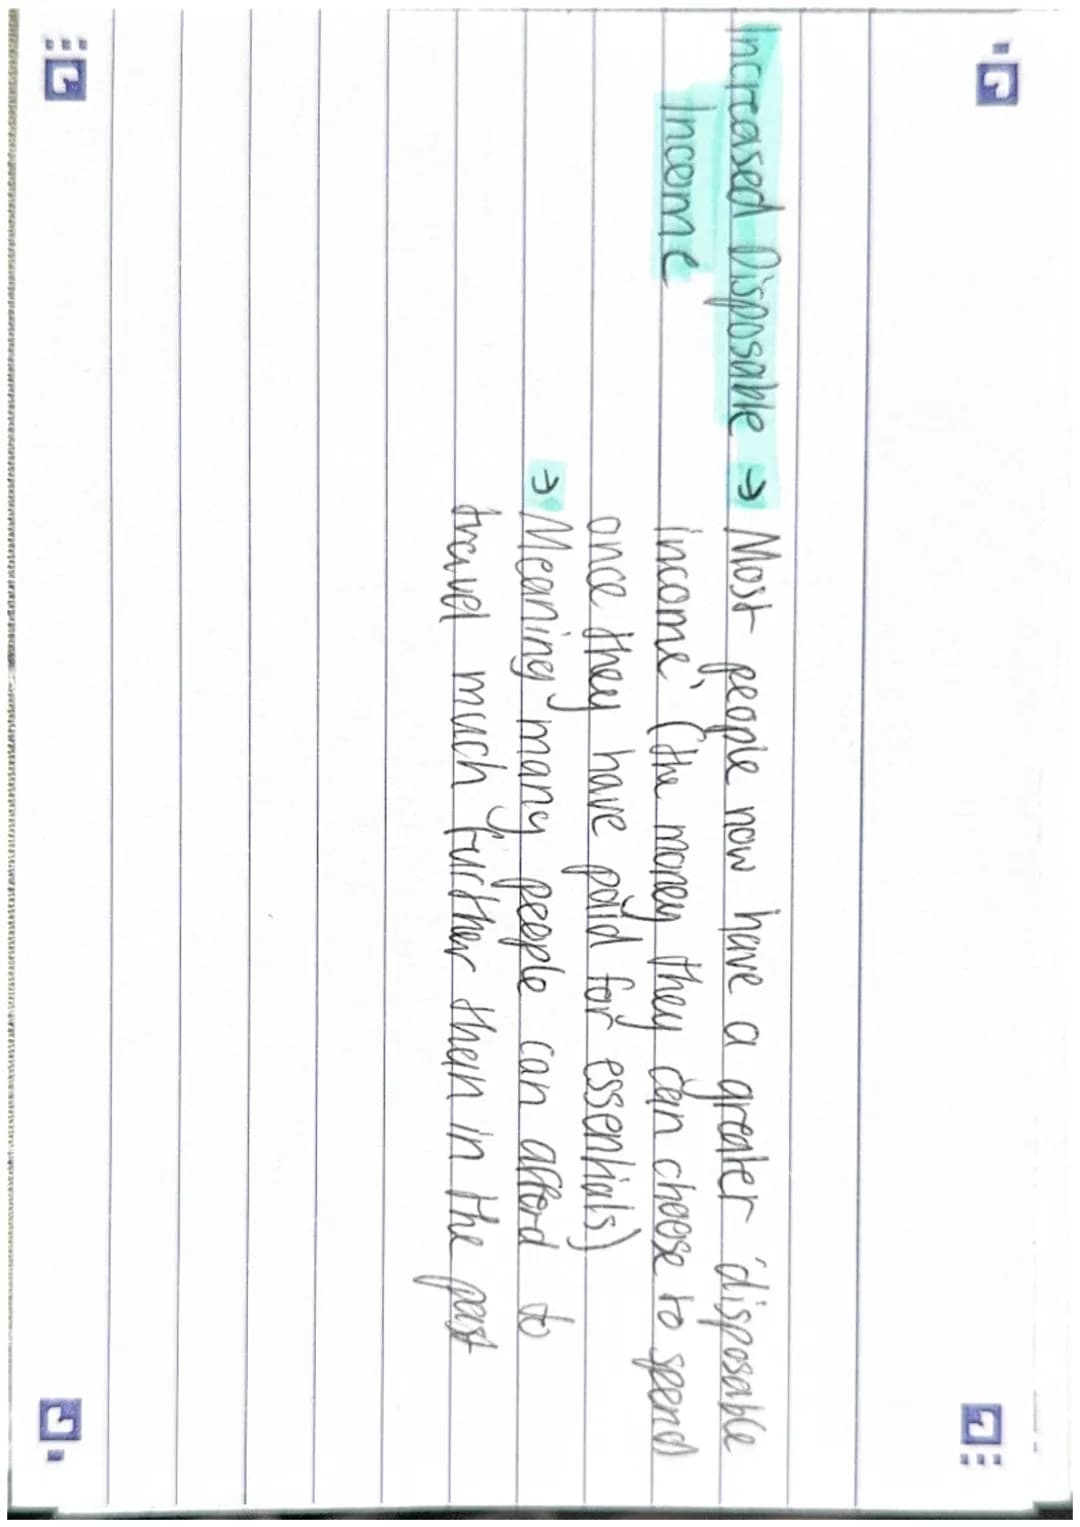 Increased Disposable → Most people now have a greater 'disposable
Income income' (the money they can choose to spend
once they have paid for essentials)
→ Meaning many people can afford to
travel much further than in the past